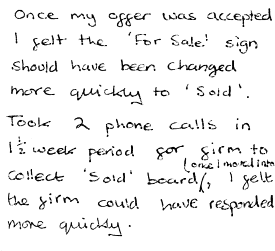 Once my offer was accepted
I felt the 'For Sale' sign
should have been changed
more quickly to 'Sold'.
Took 2 phone calls in
1½ week period for firm to
collect 'Sold' board (once I moved in), I felt
the firm could have responded
more quickly.